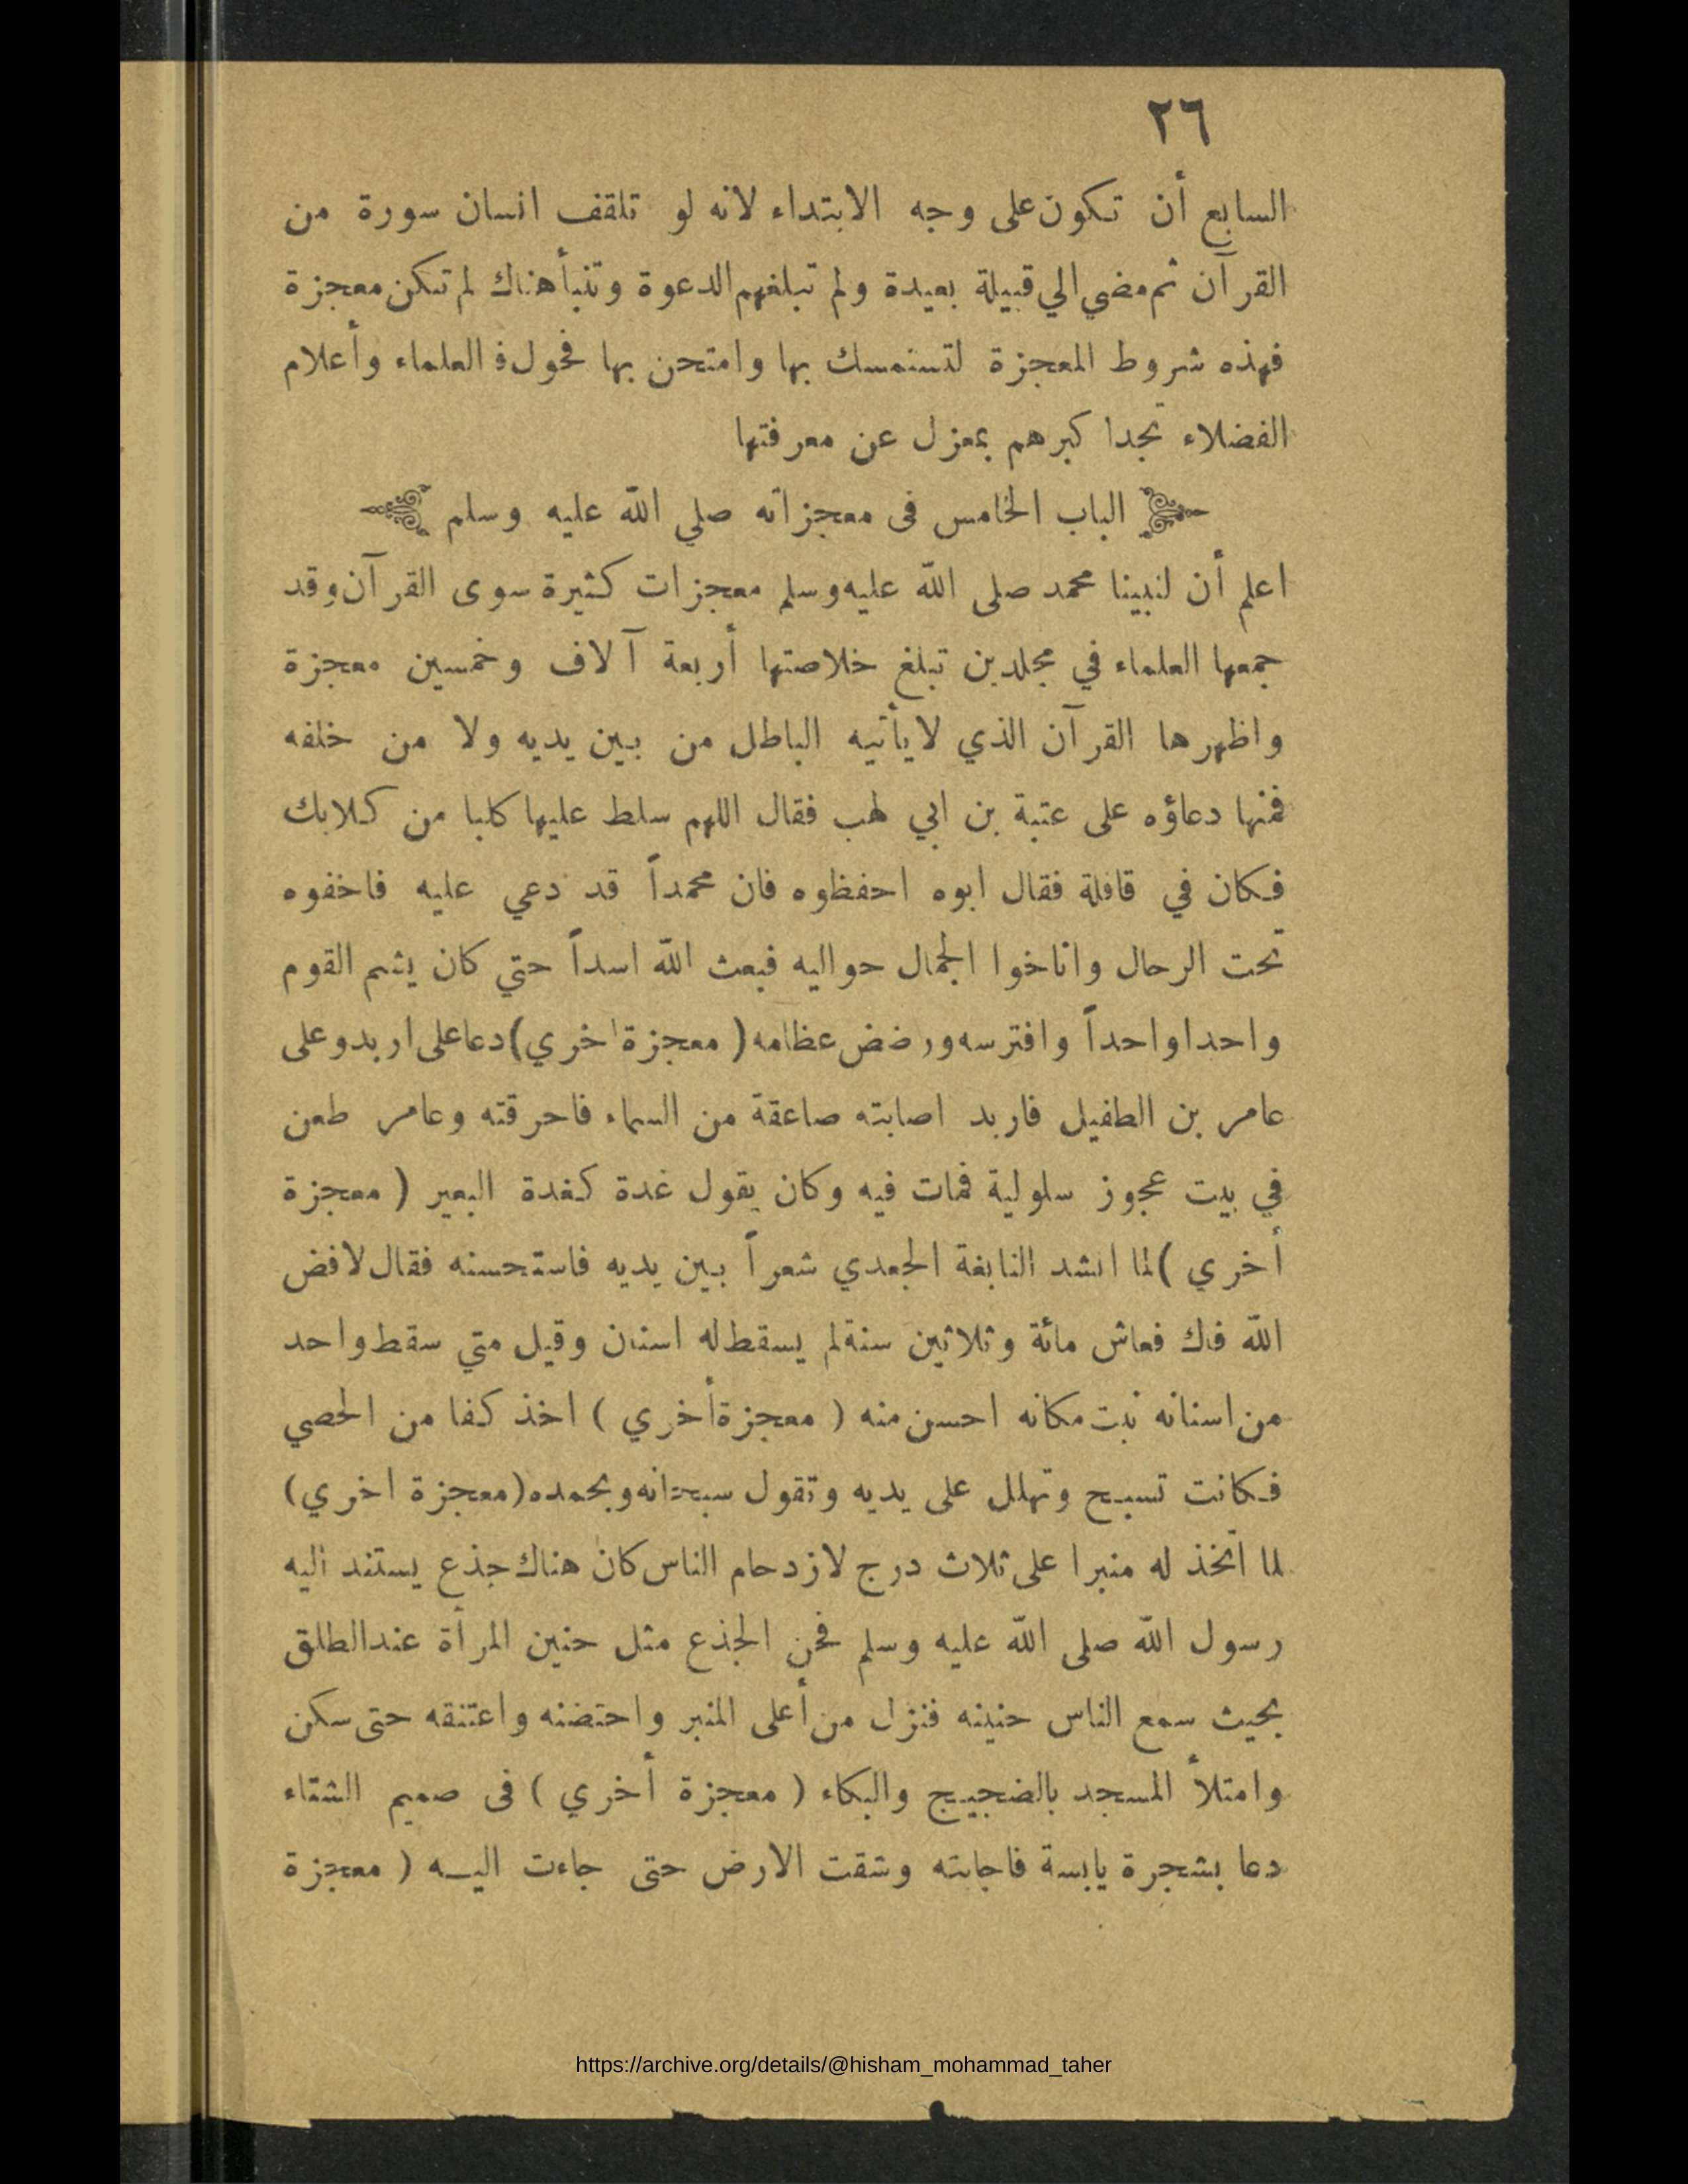 ٢٦
السابع أن تكون على وجه الابتداء لانه لو تلقف انسان سورة من
القرآن ثم مضي الي قبيلة بعيدة ولم تبلغهم الدعوة وتنبأ هناك لم تكن معجزة
فهذه شروط المعجزة لتستمسك بها وامتحن بها فحول ف العلماء وأعلام
الفضلاء تجد اكبرهم بمعزل عن معرفتها
الباب الخامس فى معجزاته صلي الله عليه وسلم
اعلم أن لنبينا محمد صلى الله عليه وسلم معجزات كثيرة سوى القرآن وقد
جمعها العلماء في مجلدين تبلغ خلاصتها أربعة آلاف وخمسين معجزة
واظهرها القرآن الذي لا يأتيه الباطل من بين يديه ولا من خلفه
فمنها دعاؤه على عتبة بن ابي لهب فقال اللهم سلط عليها كلبا من كلابك
فكان في قافلة فقال ابوه احفظوه فان محمداً قد دعي عليه فاخفوه
تحت الرحال واناخوا الجمال حواليه فبعث الله اسداً حتي كان يشم القوم
واحدا واحداً وافترسه ورضض عظامه ( معجزة اخري ) دعا على اربد وعلى
عامر بن الطفيل فاربد اصابته صاعقة من السماء فاحرقته وعامر طعن
في بيت عجوز سلولية فمات فيه وكان يقول غدة كغدة البعير ( معجزة
أخري ) لما انشد النابغة الجعدي شعراً بين يديه فاستحسنه فقال لافض
الله فاك فعاش مائة وثلاثين سنة لم يسقط له اسنان وقيل متي سقط واحد
من اسنانه نبت مكانه احسن منه ( معجزة أخري ) اخذ كفا من الحصي
فكانت تسبح وتهلل على يديه وتقول سبحانه وبحمده ( معجزة اخري )
لما اتخذ له منبرا على ثلاث درج لازدحام الناس كان هناك جذع يستند اليه
رسول الله صلى الله عليه وسلم فحن الجذع مثل حنين المرأة عند الطلق
بحيث سمع الناس حنينه فنزل من أعلى المنبر واحتضنه واعتنقه حتى سكن
وامتلأ المسجد بالضجيج والبكاء ( معجزة أخري ) فى صميم الشتاء
دعا بشجرة يابسة فاجابته وشقت الارض حتى جاءت اليه ( معجزة
https://archive.org/details/@hisham_mohammad_taher